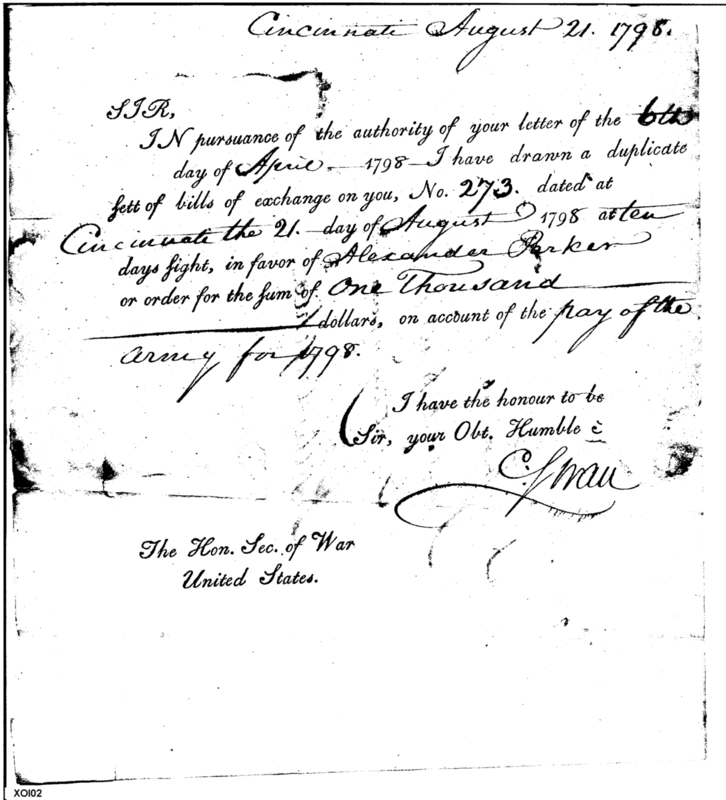 Cincinnati August 21. 1798.
SIR,
IN pursuance of the authority of your letter of the 6th
day of April 1798 I have drawn a duplicate
sett of bills of exchange on you, No. 273. dated at
Cincinnati the 21. day of August 1798 at ten
days sight, in favor of Alexander Parker
or order for the sum of One Thousand
dollars, on account of the pay of the
army for 1798.
I have the honour to be
Sir, your Obt. Humble
C. Swan
The Hon. Sec. of War
United States.
XOI02